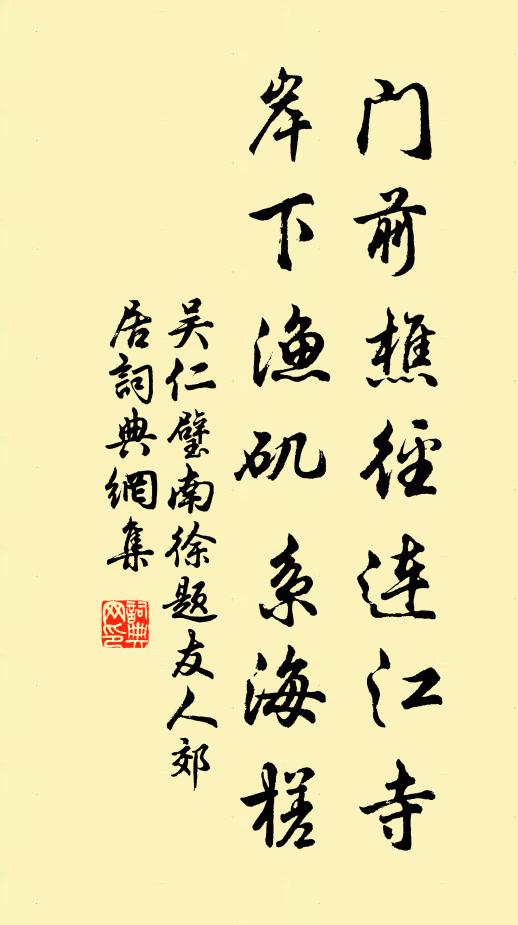 门前樵径连江寺
岸下渔矶系海槎
吴仁璧南徐题友人郊
居詞典網集
詞典
网印